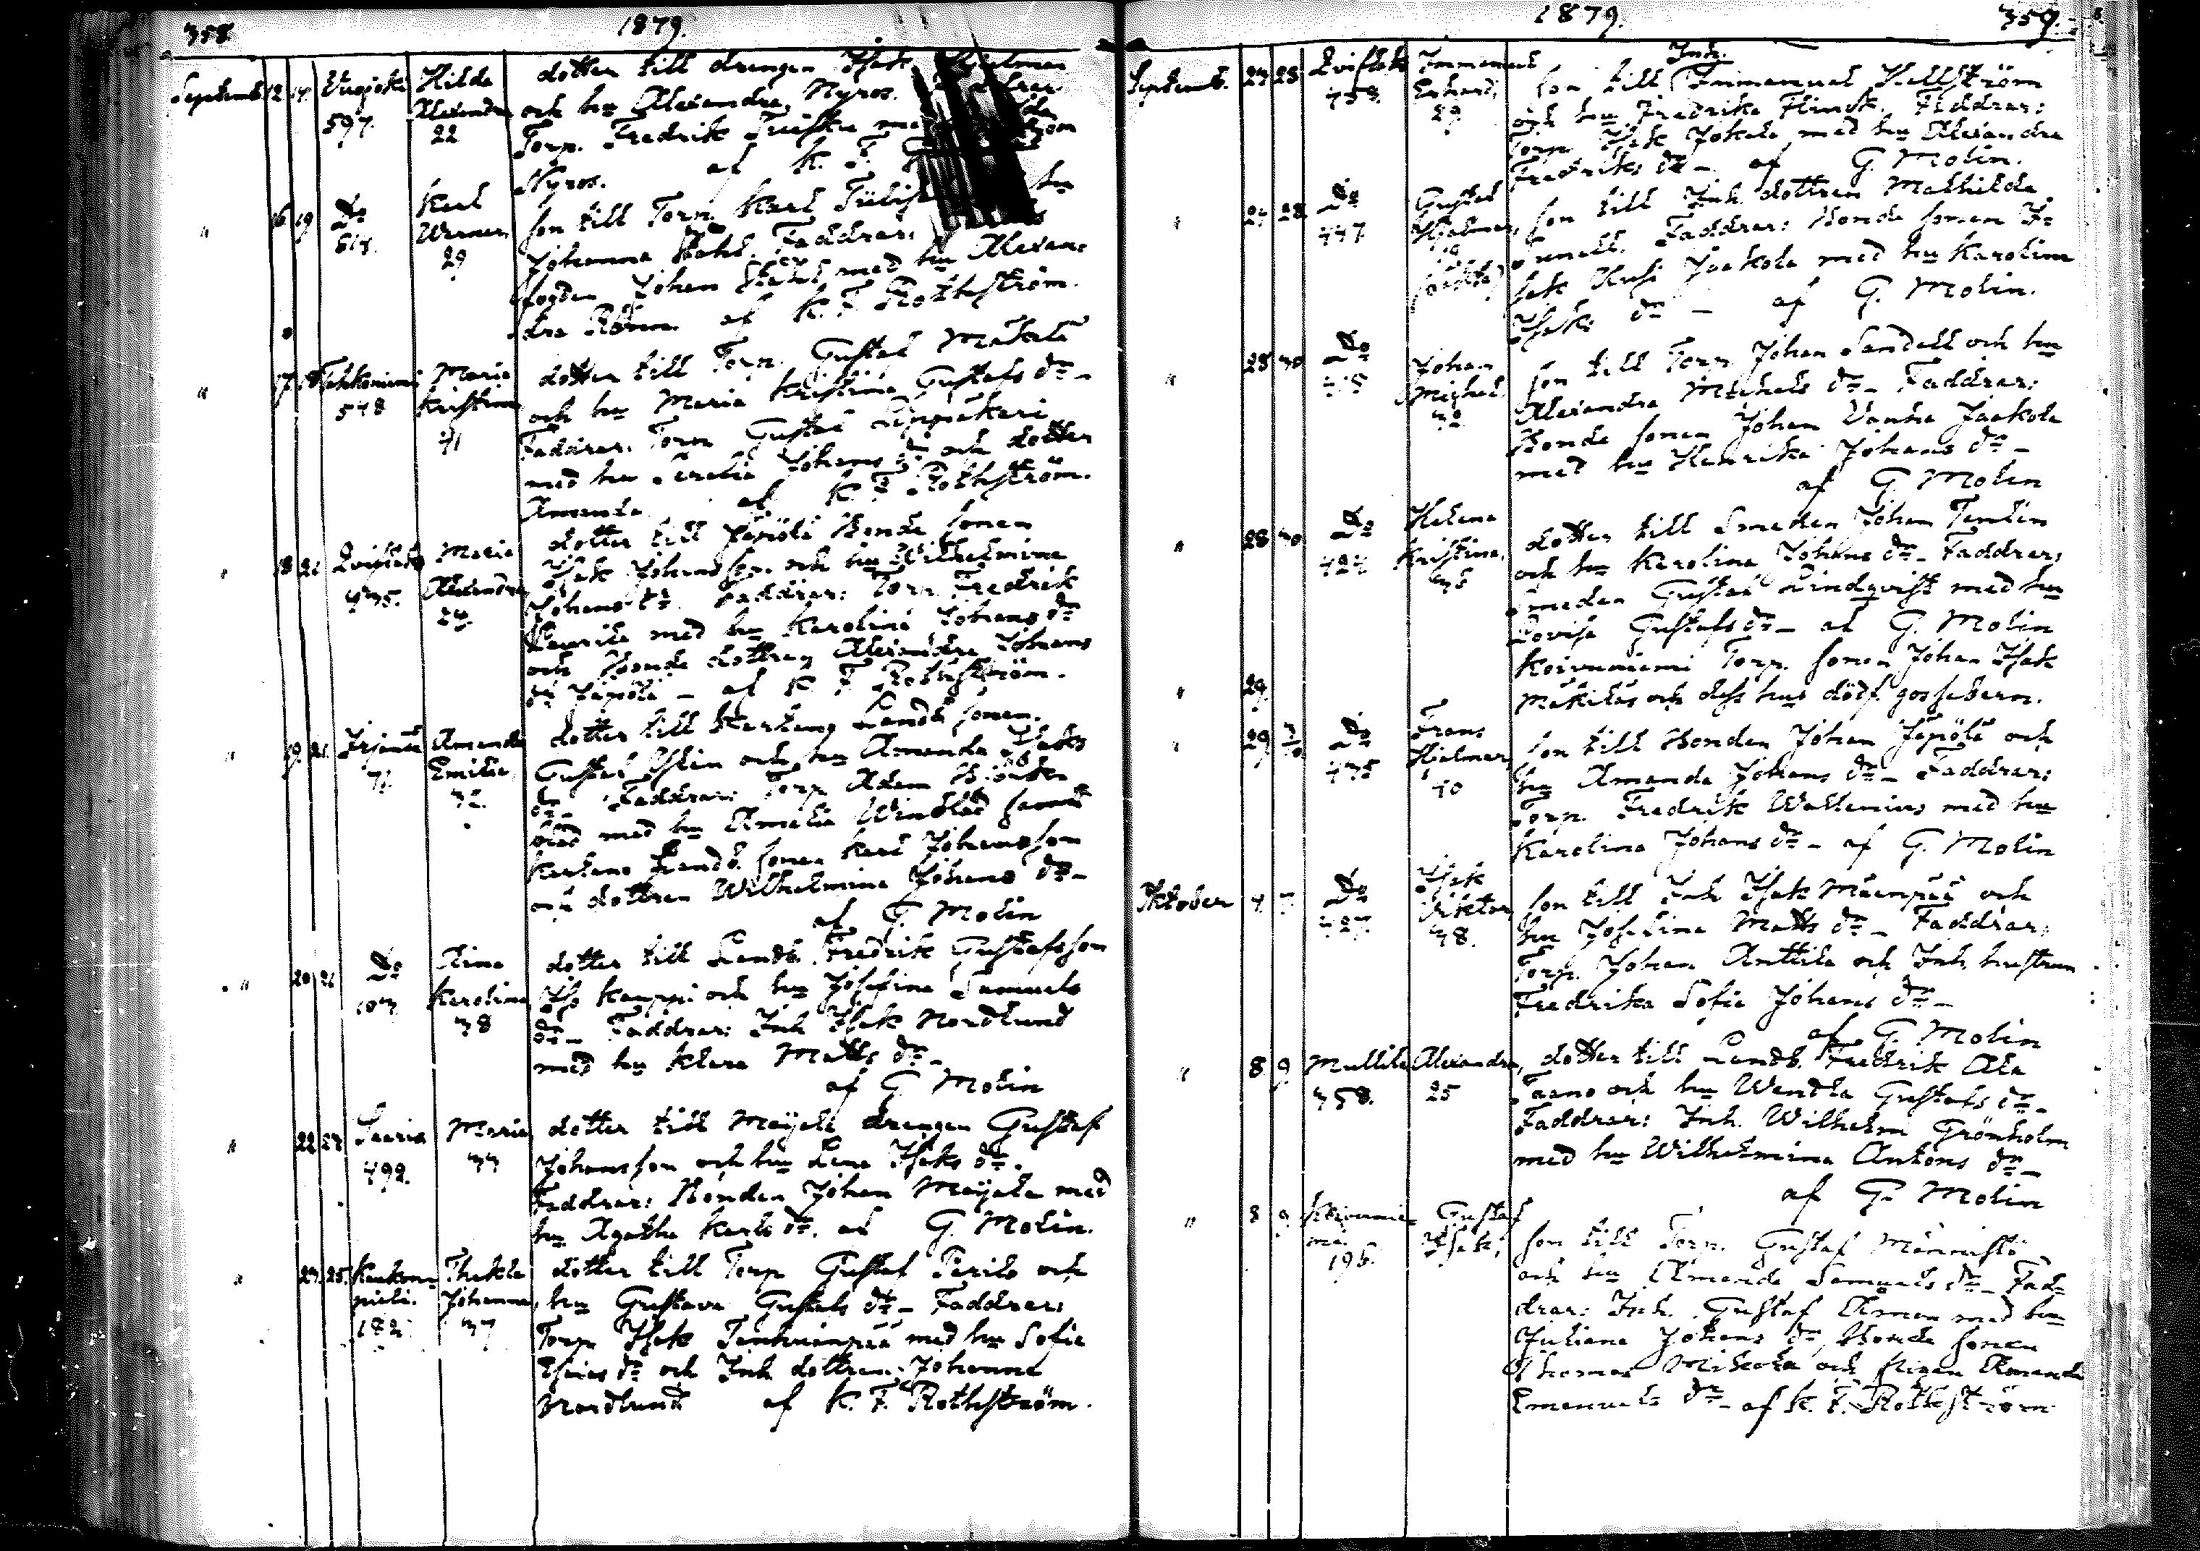 358
1879.
Septemb. 12 14 597. Hilda Alexandra 22
dotter till drengen Isak
och hu Alexandra Nyros.
Torp. Fredrik
Nyros. af K. F.
" 16 19 Do 514. Karl Werner 29
son till Torp. Karl
Johanna Stahl. Faddrar:
Fogden Johan Stahl med hu Alexan-
dra af K. F. Rothström.
" 17 18 548 Maria Kristina 41
dotter till Torp. Gustaf Mäkelä
och hu Maria Kristina Gustafs dr.
Faddrar: Torp. Gustaf
med hu Johans dr. och dotter
Amanda af K. F. Rothström.
" 18 21 435. Maria Alexandra 24.
dotter till Sepölä Bonde sonen
Isak Johansson och hu Wilhelmina
Johans dr. Faddrar: Torp. Fredrik
Laurila med hu Karolina Johans dr
och Bonde dottren Alexandra Johans
dr Sepölä - af K. F. Rothström.
" 19. 21. Irjanne 71. Amanda Emilia 32.
dotter till Kartano Landb. sonen
Gustaf och hu Amanda Isaks
dr. Faddrar: Torp. Adam
med hu Amalia Winblad samt
Kartano Landb. sonen Karl Johansson
och dottren Wilhelmina Johans dr.
af G. Molin
" 20 21 Do 107 Karolina 38
dotter till Landb. Fredrik Gustafsson
Iso Kauppi och hu Josefina Samuels
dr. Faddrar: Inh. Isak Nordlund
med hu Klara Matts dr.
af G. Molin
" 22 27 492. Maria 33
dotter till Maijala drengen Gustaf
Johansson och hu Lena Isaks dr.
Faddrar: Bonden Johan Maijala med
hu Agatha Karls dr. af G. Molin.
" 23. 25. Kaukom- pieli. Thekla Johanna, 37
dotter till Torp. Gustaf Perilä och
hu Gustava Gustafs dr. Faddrar:
Torp. Isak med hu Sofia
Esaias dr och Inh. dottren Johanna
Nordlund af K. F. Rothström.
1879.
359.
Septemb. 458. Immanuel Erhard, 29
Inh.
son till Immanuel Hellström
och hu Fredrika Flinck. Faddrar:
Torp. Isak Jokela med hu Alexandra
Fredriks dr - af G. Molin.
" 24 28 Do 447. Gustaf Hjalmar,
son till Inh. dottren Mathilda
Sunell. Faddrar: Bonde sonen I-
sak Uusi Jaakola med hu Karolina
Isaks dr - af G. Molin.
" 28 30 Do Johan Michel,
son till Torp. Johan Sandell och hu
Alexandra Michels dr - Faddrar:
Bonde sonen Johan Vanha Jaakola
med hu Henrika Johans dr -
af G. Molin
" 28 30 Do 424 Helena Kristina,
dotter till Smeden Johan Tenlén
och hu Karolina Johans dr - Faddrar:
Smeden Gustaf Lindqvist med hu
Lovisa Gustafs dr - af G. Molin
" 29.
Koivuniemi Torp. sonen Johan Isak
Mäkiläs och dess hus dödf. gossebarn.
" 29 Do 435 Frans Hjalmar, 40
son till Bonden Johan Sepölä och
hu Amanda Johans dr - Faddrar:
Torp. Fredrik Wallenius med hu
Karolina Johans dr - af G. Molin
Oktober 4. Do 427. Isak Viktor, 38.
son till Inh. Isak Mäenpää och
hu Josefina Matts dr - Faddrar:
Torp. Johan Anttila och Inh. hustrun
Fredrika Sofia Johans dr -
af G. Molin
" 8 9 Mullila 358. Alexandra, 25
dotter till Landb. Fredrik Ala
och hu Wendla Gustafs dr -
Faddrar: Inh. Wilhelm Grönholm
med hu Wilhelmina Antons dr -
af G. Molin
" 8 9. Koivunie- mi 196. Gustaf Isak,
son till Torp. Gustaf Männistö
och hu Amanda Samuels dr - Fad-
drar: Inh. Gustaf med hu
Juliana Johans dr, Bonde sonen
Thomas Mikola och pigan Amanda
Emanuels dr - af K. F. Rothström